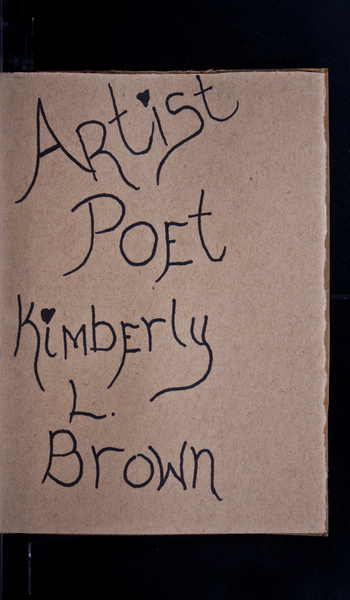 Artist
Poet
Kimberly
L.
Brown